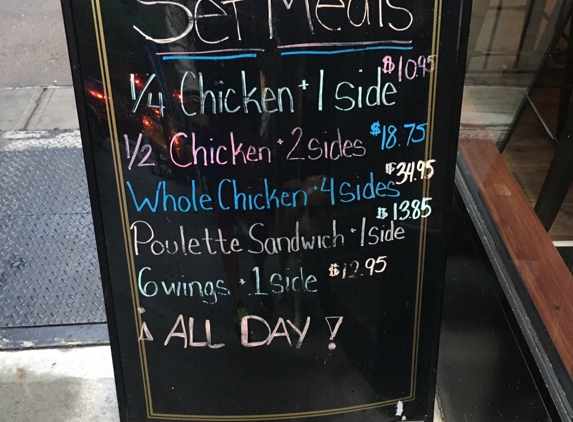 Set Meals
1/4 Chicken + 1 side $10.95
1/2 Chicken + 2 sides $18.75
Whole Chicken + 4 sides $34.95
Poulette Sandwich + 1 side $13.85
6 wings + 1 side $12.95
¡ ALL DAY !